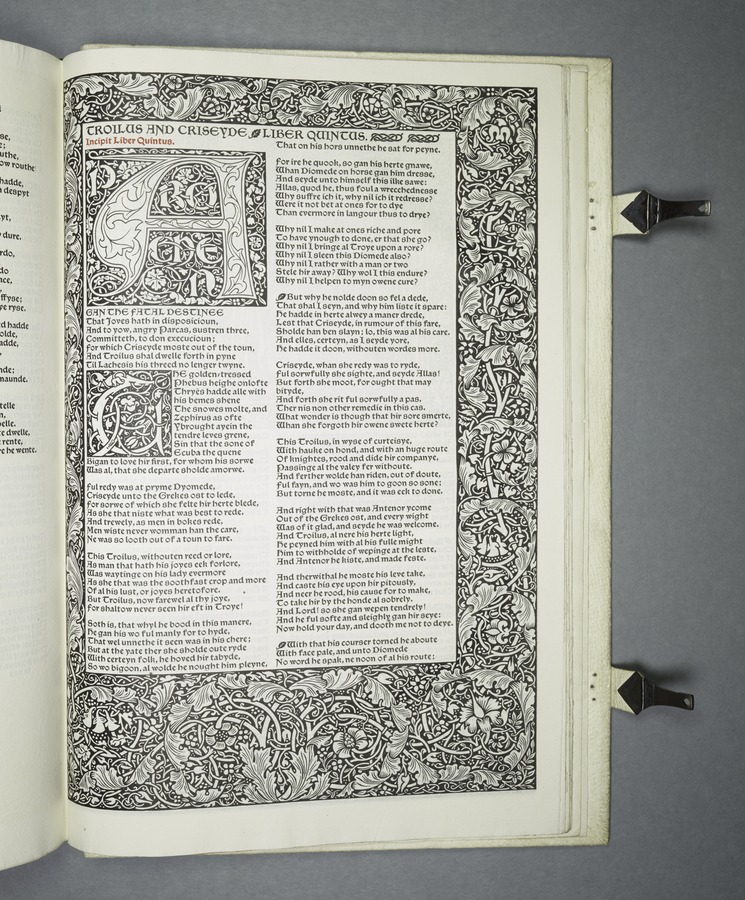 se,
uthe,
ow routhe
hadde,
n despyt
yt,
dure.
rdo,
do
ace,
ffyse;
pe ryse.
d hadde
olde,
adde,
nde;
maunde.
telle
n,
elle.
te dwelle,
rente,
re he wente.
TROILUS AND CRISEYDE, LIBER QUINTUS.
Incipit Liber Quintus.
APROCHEN
GAN THE FATAL DESTINEE
That Joves hath in disposicioun,
And to yow, angry Parcas, sustren three,
Committeth, to don execucioun;
For which Criseyde moste out of the toun,
And Troilus shal dwelle forth in pyne
Til Lachesis his threed no lenger twyne.
THE golden-tressed
Phebus heighe onlofte
Thryës hadde alle with
his bemes shene
The snowes molte, and
Zephirus as ofte
Ybrought ayein the
tendre leves grene,
Sin that the sone of
Ecuba the quene
Bigan to love hir first, for whom his sorwe
Was al, that she departe sholde amorwe.
Ful redy was at pryme Dyomede,
Criseyde unto the Grekes ost to lede,
For sorwe of which she felte hir herte blede,
As she that niste what was best to rede.
And trewely, as men in bokes rede,
Men wiste never womman han the care,
Ne was so looth out of a toun to fare.
This Troilus, withouten reed or lore,
As man that hath his joyes eek forlore,
Was waytinge on his lady evermore
As she that was the soothfast crop and more
Of al his lust, or joyes heretofore.
But Troilus, now farewel al thy joye,
For shaltow never seen hir eft in Troye!
Soth is, that whyl he bood in this manere,
He gan his wo ful manly for to hyde,
That wel unnethe it seen was in his chere;
But at the yate ther she sholde oute ryde
With certeyn folk, he hoved hir tabyde,
So wo bigoon, al wolde he nought him pleyne,
That on his hors unnethe he sat for peyne.
For ire he quook, so gan his herte gnawe,
Whan Diomede on horse gan him dresse,
And seyde unto himself this ilke sawe:
Allas, quod he, thus foul a wrecchednesse
Why suffre ich it, why nil ich it redresse?
Were it not bet at ones for to dye
Than evermore in langour thus to drye?
Why nil I make at ones riche and pore
To have ynough to done, er that she go?
Why nil I bringe al Troye upon a rore?
Why nil I sleen this Diomede also?
Why nil I rather with a man or two
Stele hir away? Why wol I this endure?
Why nil I helpen to myn owene cure?
But why he nolde doon so fel a dede,
That shal I seyn, and why him liste it spare:
He hadde in herte alwey a maner drede,
Lest that Criseyde, in rumour of this fare,
Sholde han ben slayn; lo, this was al his care.
And elles, certeyn, as I seyde yore,
He hadde it doon, withouten wordes more.
Criseyde, whan she redy was to ryde,
Ful sorwfully she sighte, and seyde Allas!
But forth she moot, for ought that may
bityde,
And forth she rit ful sorwfully a pas.
Ther nis non other remedie in this cas.
What wonder is though that hir sore smerte,
Whan she forgoth hir owene swete herte?
This Troilus, in wyse of curteisye,
With hauke on hond, and with an huge route
Of knightes, rood and dide hir companye,
Passinge al the valey fer withoute.
And ferther wolde han riden, out of doute,
Ful fayn, and wo was him to goon so sone;
But torne he moste, and it was eek to done.
And right with that was Antenor ycome
Out of the Grekes ost, and every wight
Was of it glad, and seyde he was welcome.
And Troilus, al nere his herte light,
He peyned him with al his fulle might
Him to withholde of wepinge at the leste,
And Antenor he kiste, and made feste.
And therwithal he moste his leve take,
And caste his eye upon hir pitously,
And neer he rood, his cause for to make,
To take hir by the honde al sobrely.
And Lord! so she gan wepen tendrely!
And he ful softe and sleighly gan hir seye:
Now hold your day, and dooth me not to deye.
With that his courser torned he aboute
With face pale, and unto Diomede
No word he spak, ne noon of al his route: